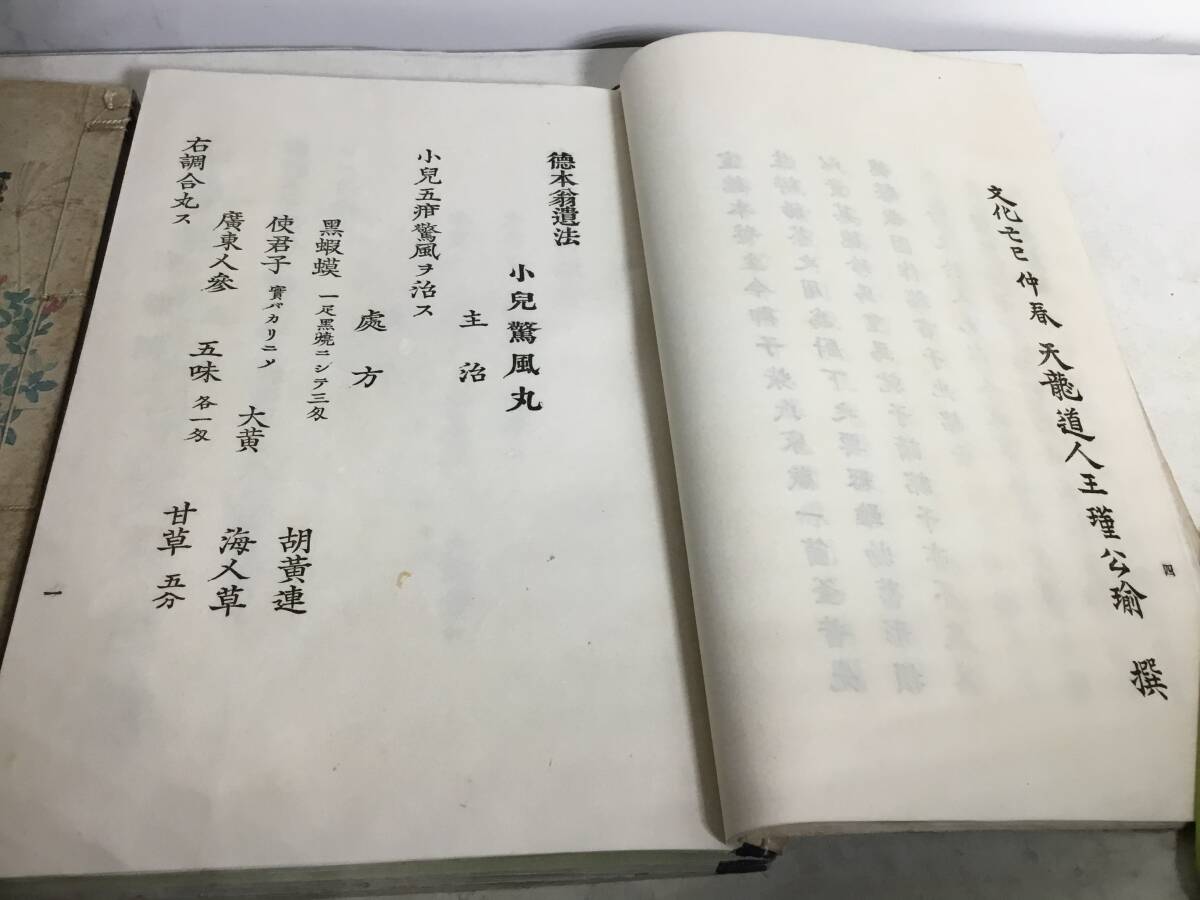 文化己巳仲春 天龍道人王瑾公瑜 撰
四
德本翁遺法
小兒驚風丸
主治
小兒五疳驚風ヲ治ス
處方
黑蝦蟆 一疋黑燒ニシテ三匁
使君子 實バカリニメ 胡黃連
大黃 海人草
廣東人參 五味 各一匁 甘草 五分
右調合丸ス
一